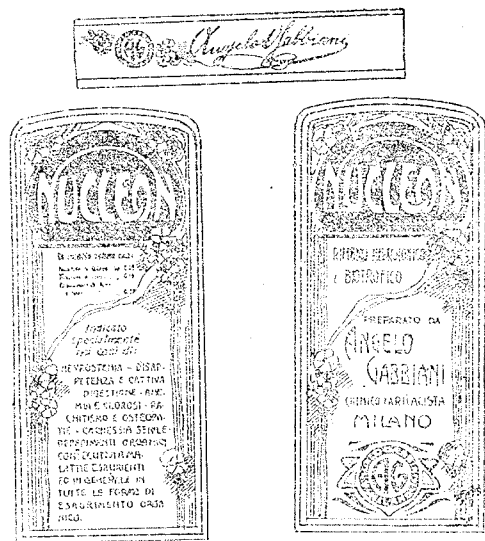 Angelo Gabbiani
NUCLEON
Indicato
specialmente
nei casi di:
NEVRASTENIA - DISAP-
PETENZA E CATTIVA
DIGESTIONE - ANE-
MIA E CLOROSI - RA-
CHITISMO E OSTEOPA-
TIE - CACHESSIA SENILE
DEPERIMENTI ORGANICI
CONSECUTIVI A MA-
LATTIE ESAURIENTI
ED IN GENERALE IN
TUTTE LE FORME DI
ESAURIMENTO ORGA
NICO.
NUCLEON
E BIOTROFICO
PREPARATO DA
ANGELO
GABBIANI
CHIMICO FARMACISTA
MILANO